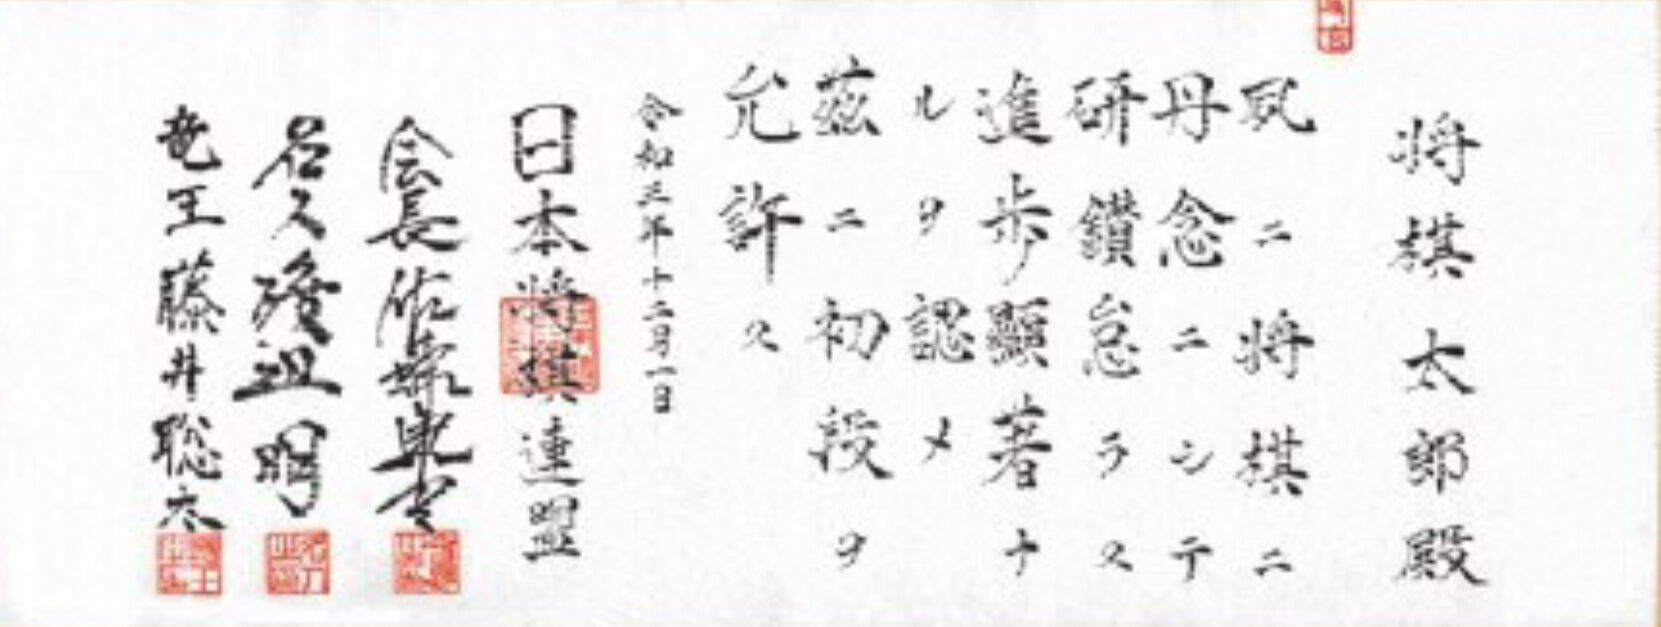 将棋太郎殿
夙ニ将棋ニ
丹念ニシテ
研鑽怠ラス
進歩顕著ナ
ルヲ認メ
茲ニ初段ヲ
允許ス
令和三年十二月一日
日本将棋連盟
会長佐藤康光
名人渡辺明
竜王藤井聡太